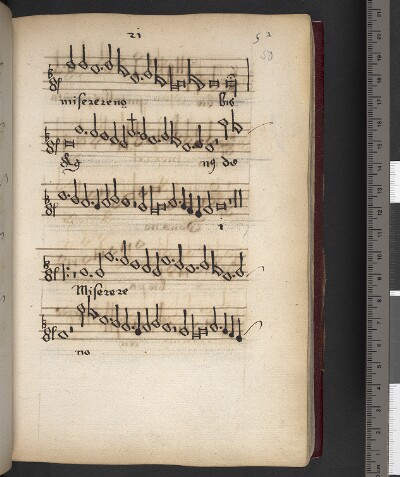 21
52
50
miserereno bis
Ag ng de
i
Miserere
no